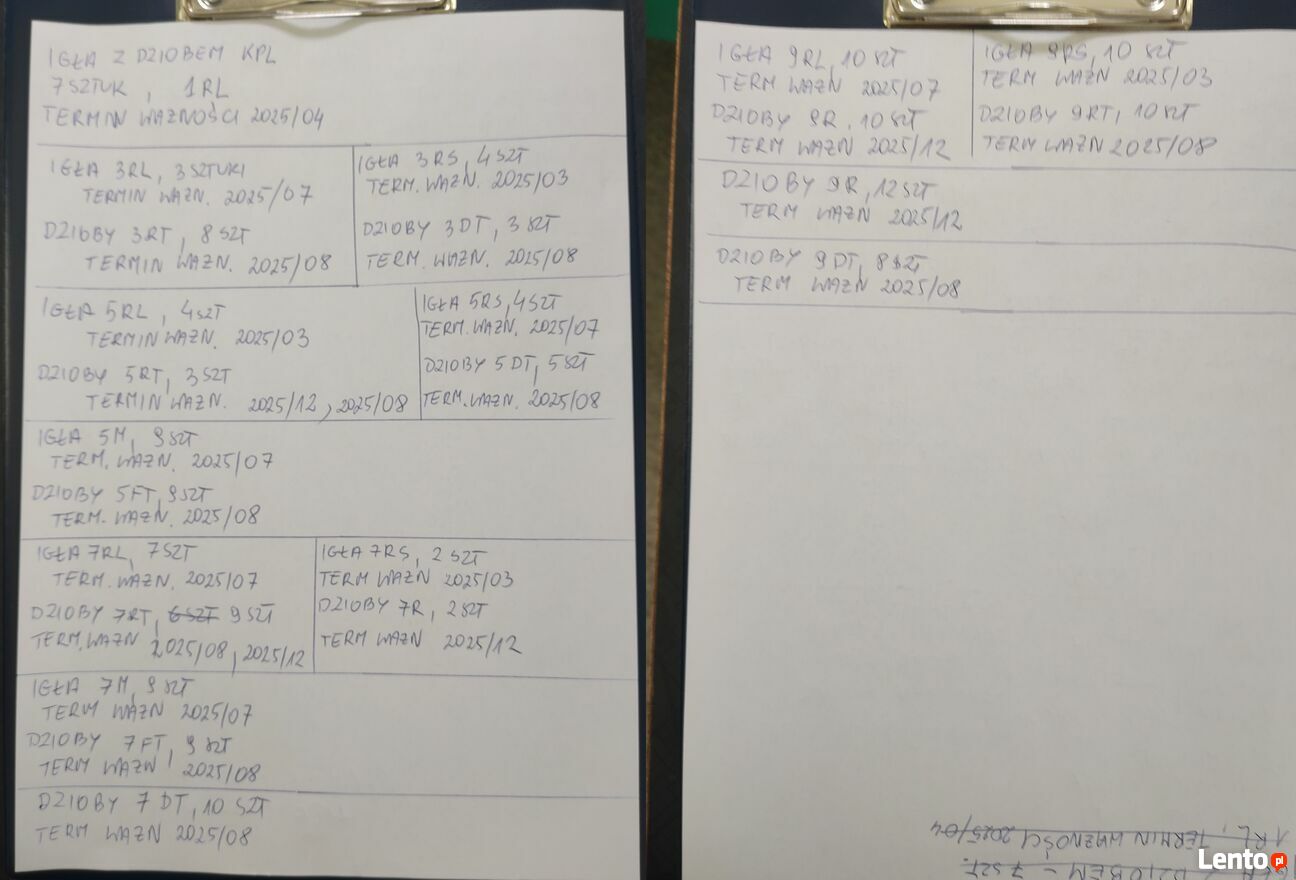 IGŁA Z DZIOBEM KPL
7 SZTUK, 1RL
TERMIN WAŻNOŚCI 2025/04
IGŁA 3RL, 3 SZTUKI
TERMIN WAŻN. 2025/07
DZIOBY 3RT, 8 SZT
TERMIN WAŻN. 2025/08
IGŁA 3RS, 4 SZT
TERM. WAŻN. 2025/03
DZIOBY 3DT, 3 SZT
TERM. WAŻN. 2025/08
IGŁA 5RL, 4 SZT
TERMIN WAŻN. 2025/03
DZIOBY 5RT, 3 SZT
TERMIN WAŻN. 2025/12, 2025/08
IGŁA 5RS, 4 SZT
TERM. WAŻN. 2025/07
DZIOBY 5 DT, 5 SZT
TERM. WAŻN. 2025/08
IGŁA 5M, 9 SZT
TERM. WAŻN. 2025/07
DZIOBY 5FT, 9 SZT
TERM. WAŻN. 2025/08
IGŁA 7RL, 7 SZT
TERM. WAŻN. 2025/07
DZIOBY 7RT, 6 SZT 9 SZT
TERM. WAŻN 2025/08, 2025/12
IGŁA 7RS, 2 SZT
TERM WAŻN 2025/03
DZIOBY 7R, 2 SZT
TERM WAŻN 2025/12
IGŁA 7M, 9 SZT
TERM WAŻN 2025/07
DZIOBY 7FT, 9 SZT
TERM WAŻN 2025/08
DZIOBY 7 DT, 10 SZT
TERM WAŻN 2025/08
IGŁA 9RL, 10 SZT
TERM WAŻN 2025/07
DZIOBY 9R, 10 SZT
TERM WAŻN 2025/12
IGŁA 9RS, 10 SZT
TERM WAŻN 2025/03
DZIOBY 9RT, 10 SZT
TERM WAŻN 2025/08
DZIOBY 9R, 12 SZT
TERM WAŻN 2025/12
DZIOBY 9 DT, 8 SZT
TERM WAŻN 2025/08
IGŁA Z DZIOBEM - 7 SZT.
1 RL, TERMIN WAŻNOŚCI 2025/04
Lento.pl